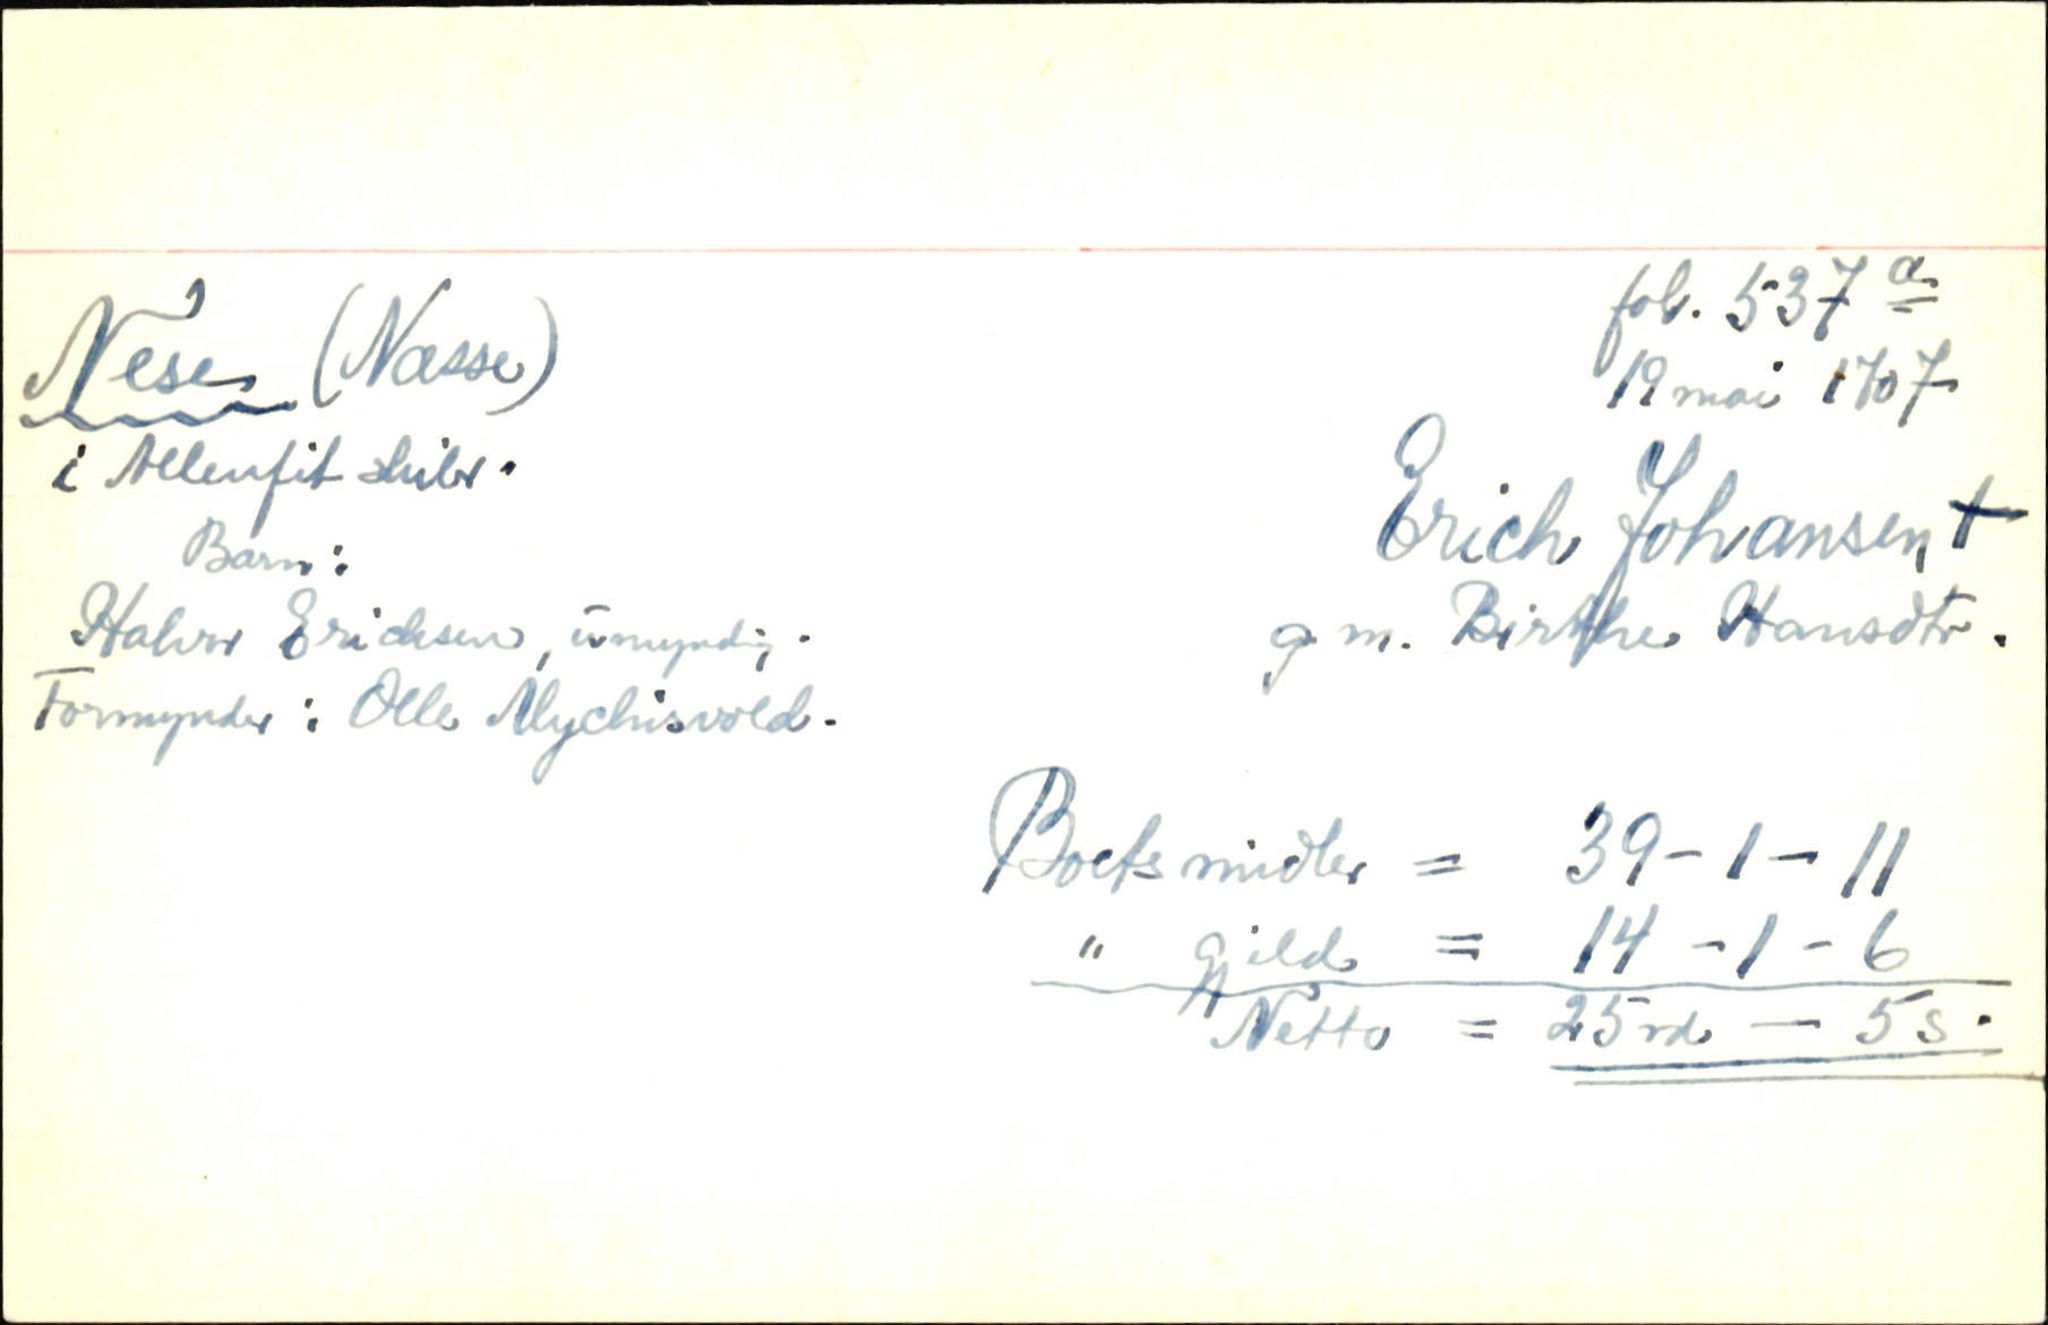 fol. 537 a
19 mai 1707
Nese (Næsse)
i Allenfit skibr.
Erich Johansen †
g. m. Birthe Hansdtr.
Barn:
Halvor Erichsen, umyndig.
Formynder: Olle Mychisvold.
Boets midler = 39 - 1 - 11
" gjeld = 14 - 1 - 6
Netto = 25 rd - 5 s.